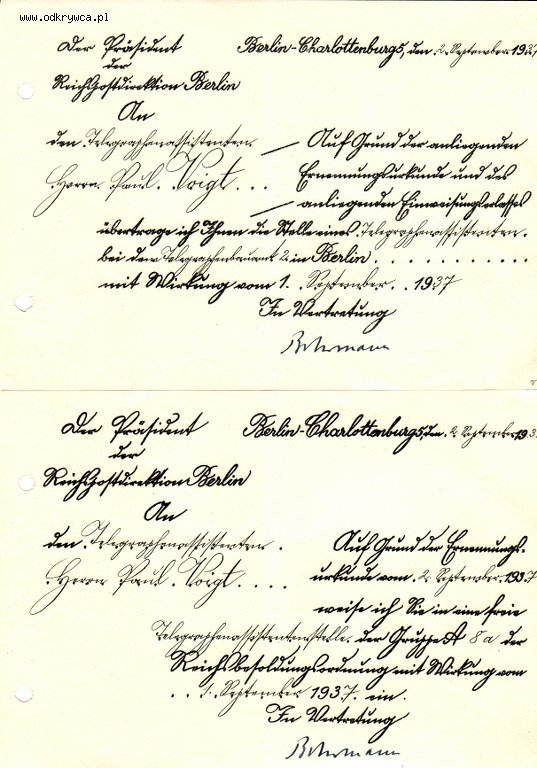 www.odkrywca.pl
Der Präsident Berlin-Charlottenburg 5, den 2. September 1937
der
Reichspostdirektion Berlin
An
den Telegraphenassistenten
Herrn Paul Voigt . . .
Auf Grund der anliegenden
Ernennungsurkunde und des
anliegenden Einweisungserlasses
übertrage ich Ihnen die Stelle eines Telegraphenassistenten.
bei dem Telegraphenbauamt 2 in Berlin . . . . . . . . . . .
mit Wirkung vom 1. September . . 1937
In Vertretung
Der Präsident Berlin-Charlottenburg 5, den 2. September 193
der
Reichspostdirektion Berlin
An
den Telegraphenassistenten .
Herrn Paul Voigt . . . .
Auf Grund der Ernennungs-
urkunde vom 2. September 1937
weise ich Sie in eine freie
Telegraphenassistentenstelle der Gruppe A 8a der
Reichsbesoldungsordnung mit Wirkung vom
. . 1. September 1937. ein.
In Vertretung